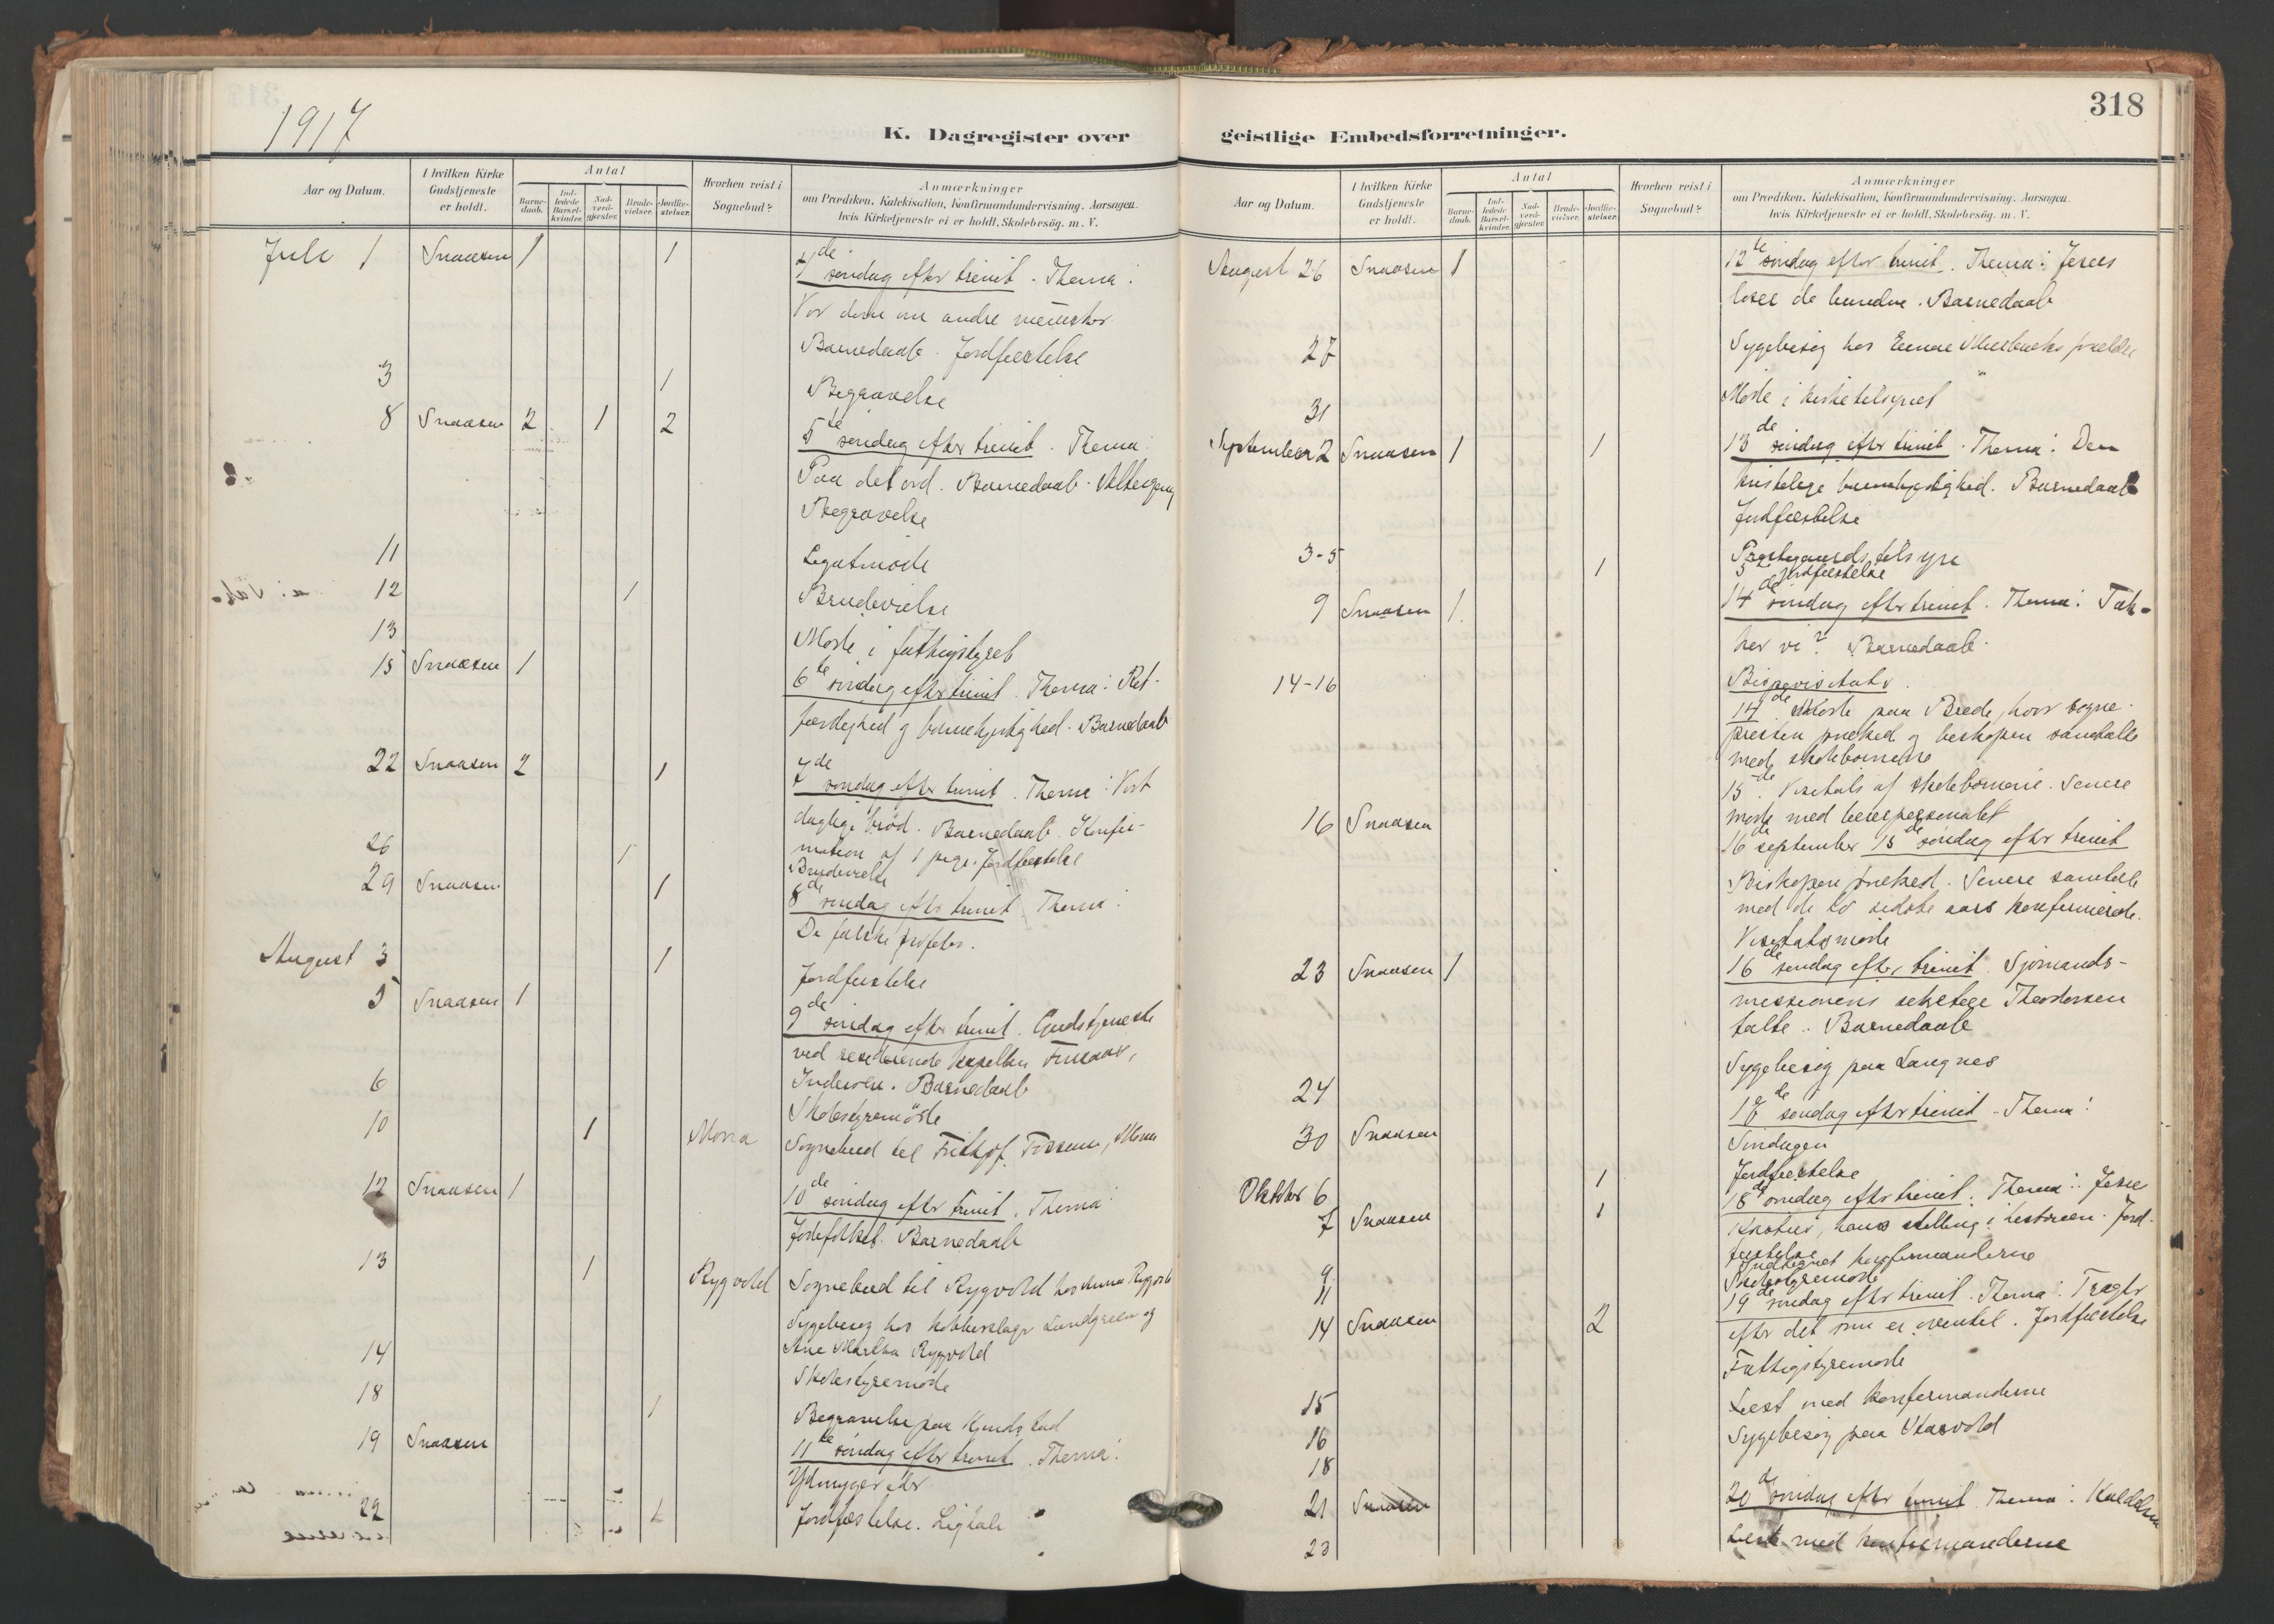 1917
K. Dagregister over
Aar og Datum.
I hvilken Kirke Gudstjeneste er holdt.
Antal
Barnedaab.
Indledede Barselkvinder.
Nadverdgjester.
Brudevielser.
Jordfæstelser.
Hvorhen reist i Sognebud?
Anmærkninger
om Prædiken, Katekisation, Konfirmandundervisning. Aarsagen
hvis Kirketjeneste ei er holdt. Skolebesög. m. V.
Juli 1 Snaasen 1 1 4de søndag efter trinit. Thema:
Vor dom om andre mennesker
Barnedaab. Jordfæstelse
3 1 Begravelse
8 Snaasen 2 1 2 5te søndag efter trinit. Thema:
Paa det ord. Barnedaab. Altergang
Begravelse
11 Legatmøde
12 1 Brudevielse
13 Møde i fattigstyret
15 Snaasen 1 6te søndag efter trinit. Thema: Ret-
færdighed og barmhjertighed. Barnedaab
22 Snaasen 2 1 7de søndag efter trinit. Thema: Vort
daglige brød. Barnedaab. Konfir-
mation af 1 pige. Jordfæstelse
26 1 Brudevielse
29 Snaasen 1 8de søndag efter trinit. Thema:
De falske profeter.
August 3 1 Jordfæstelse
5 Snaasen 1 9de søndag efter trinit. Gudstjeneste
ved residerende kapellan
Inderøen. Barnedaab
6 Skolestyremöde
10 1 Mona Sognebud til Fritjof
12 Snaasen 1 10de søndag efter trinit. Thema:
Jødefolket. Barnedaab
13 1 Rygvold Sognebud til Rygvold hos
Sygebesøg hos kobberslager Lundgreen og
Ane Martha Rygvold
14 Skolestyremøde
18 1 Begravelse paa
19 Snaasen 11te søndag efter trinit. Thema:
Ydmyger eder
22 1 Jordfæstelse. Ligtale
318
geistlige Embedsforretninger.
Aar og Datum.
I hvilken Kirke Gudstjeneste er holdt.
Antal
Barnedaab.
Indledede Barselkvinder.
Nadverdgjester.
Brudevielser.
Jordfæstelser.
Hvorhen reist i Sognebud?
Anmærkninger
om Prædiken, Katekisation, Konfirmandundervisning. Aarsagen
hvis Kirketjeneste ei er holdt. Skolebesög. m. V.
August 26 Snaasen 1 12te søndag efter trinit. Thema: Jesus
løser de bundne. Barnedaab
27 Sygebesøg hos
31 Møde i kirketilsynet
September 2 Snaasen 1 1 13de søndag efter trinit. Thema: Den
kristelige barmhjertighed. Barnedaab
Jordfæstelse
3-5 Prestegaardstilsyn
1 5 Jordfæstelse
9 Snaasen 1 14de søndag efter trinit. Thema: Tak-
ker vi? Barnedaab.
14-16 Bispevisitats.
14de Møde paa Brede, hvor sogne-
presten præked og biskopen samtalte
med skolebørnene
15de Visitats af skolebørnene. Senere
møde med lærerpersonalet
16 Snaasen 16de september 15de søndag efter trinit
Biskopen præked. Senere samtale
med de to sidste aars konfirmerede.
Visitatsmøde
23 Snaasen 1 16de søndag efter trinit. Sjømands-
missionens sekretær Theodorsen
talte. Barnedaab
24 Sygebesøg paa Langnes
30 Snaasen 17de søndag efter trinit. Thema:
Søndagen
Oktober 6 1 Jordfæstelse
7 Snaasen 1 18de søndag efter trinit. Thema: Jesu
Kristus, hans stilling i historien. Jord-
fæstelse
9 Indtegnet konfirmanderne
11 Skolestyremøde
14 Snaasen 2 19de søndag efter trinit. Thema: Tragter
efter det som er oventil. Jordfæstelse
15 Fattigstyremøde
16 Læst med konfirmanderne
18 Sygebesøg paa
21 Snaasen 20de søndag efter trinit. Thema: Kaldelsen
23 Læst med konfirmanderne